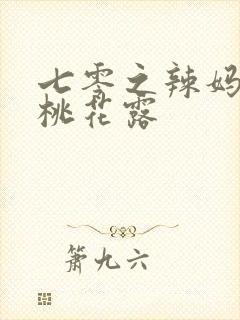 七零之辣妈
桃花露
箫九六